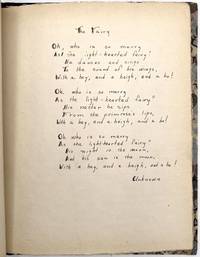 The Fairy
Oh, who is so merry
As the light-hearted fairy?
He dances and sings
To the sound of his wings,
With a hey, and a heigh, and a ho!
Oh, who is so merry
As the light-hearted fairy?
His nectar he sips
From the primrose's lips,
With a hey, and a heigh, and a ho!
Oh who is so merry
As the light-hearted fairy?
His night is the moon,
And his sun is the moon,
With a hey, and a heigh, and a ho!
Unknown